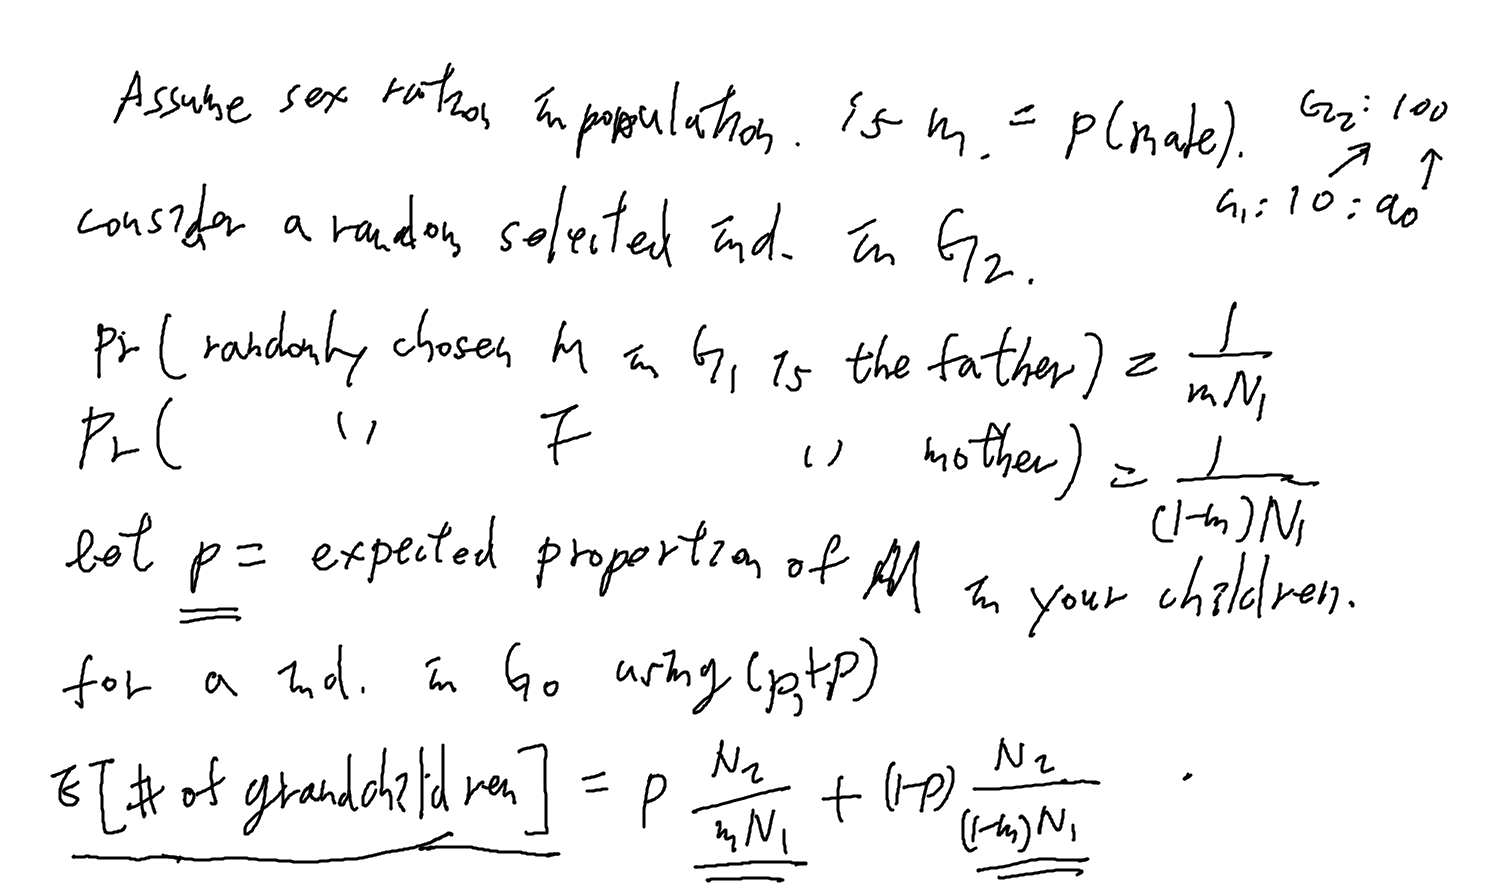 Assume sex ration in population. is m. = p(male). G2: 100
G1: 10: 90
consider a random selected ind. in G2.
Pr( randomly chosen M in G1 is the father) = 1/(mN1)
Pr( " F " mother) = 1/((1-m)N1)
let p = expected proportion of M in your children.
for a ind. in G0 using (p, 1-p)
E[# of grandchildren] = p N2/(mN1) + (1-p) N2/((1-m)N1) .